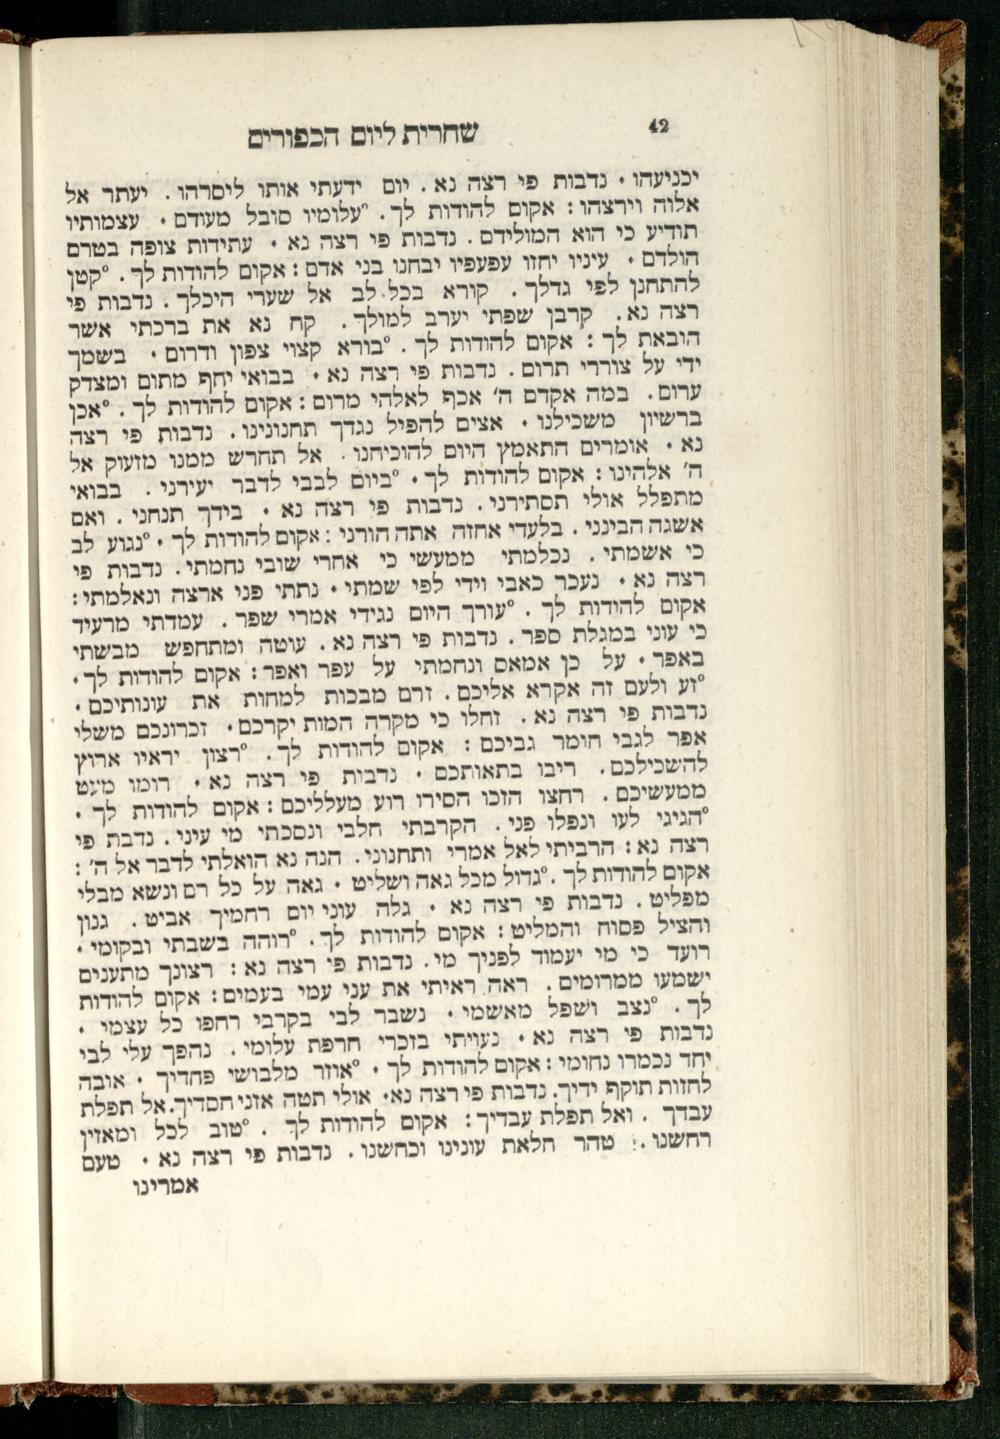 42 שחרית ליום הכפורים
יכניעהו · נדבות פי רצה נא . יום ידעתי אותו ליסרהו . יעתר אל
אלוה וירצהו : אקום להודות לך . °עלומיו סובל מעודם · עצמותיו
תודיע כי הוא המולידם . נדבות פי רצה נא · עתידות צופה בטרם
הולדם · עיניו יחזו עפעפיו יבחנו בני אדם : אקום להודות לך . °קטן
להתחנן לפי גדלך . קורא בכל לב אל שערי היכלך . נדבות פי
רצה נא . קרבן שפתי יערב למולך . קח נא את ברכתי אשר
הובאת לך : אקום להודות לך . °בורא קצוי צפון ודרום · בשמך
ידי על צוררי תרום . נדבות פי רצה נא · בבואי יחף מתום ומצדק
ערום . במה אקדם ה' אכף לאלהי מרום : אקום להודות לך . °אכן
ברשיון משכילנו · אצים להפיל נגדך תחנונינו . נדבות פי רצה
נא · אומרים התאמץ היום להוכיחנו . אל תחרש ממנו מזעוק אל
ה' אלהינו : אקום להודות לך · °ביום לבבי לדבר יעירני . בבואי
מתפלל אולי תסתירני . נדבות פי רצה נא · בידך תנחני . ואם
אשגה הבינני . בלעדי אחזה אתה הורני : אקום להודות לך · °נגוע לב
כי אשמתי . נכלמתי ממעשי כי אחרי שובי נחמתי . נדבות פי
רצה נא · נעכר כאבי וידי לפי שמתי · נתתי פני ארצה ונאלמתי :
אקום להודות לך . °עורך היום נגידי אמרי שפר . עמדתי מרעיד
כי עוני במגלת ספר . נדבות פי רצה נא . עוטה ומתחפש מבשתי
באפר · על כן אמאס ונחמתי על עפר ואפר : אקום להודות לך ·
°זע ולעם זה אקרא אליכם . זרם מבכות למחות את עונותיכם ·
נדבות פי רצה נא . זחלו כי מקרה המות יקרכם · זכרונכם משלי
אפר לגבי חומר גביכם : אקום להודות לך . °רצון יראיו ארוץ
להשכילכם . ריבו בתאותכם · נדבות פי רצה נא · רומו מעט
ממעשיכם . רחצו הזכו הסירו רוע מעלליכם : אקום להודות לך ·
°הגיגי לעו ונפלו פני . הקרבתי חלבי ונסכתי מי עיני . נדבת פי
רצה נא : הרביתי לאל אמרי ותחנוני . הנה נא הואלתי לדבר אל ה' :
אקום להודות לך . °גדול מכל גאה ושליט · גאה על כל רם ונשא מבלי
מפליט . נדבות פי רצה נא · גלה עוני יום רחמיך אביט . גנון
והציל פסוח והמליט : אקום להודות לך . °רוהה בשבתי ובקומי ·
רועד כי מי יעמוד לפניך מי . נדבות פי רצה נא : רצונך מתענים
ישמעו ממרומים . ראה ראיתי את עני עמי בעמים : אקום להודות
לך . °נצב ושפל מאשמי · נשבר לבי בקרבי רחפו כל עצמי ·
נדבות פי רצה נא · נעויתי בזכרי חרפת עלומי . נהפך עלי לבי
יחד נכמרו נחומי : אקום להודות לך · °אוזר מלבושי פחדיך · אובה
לחזות תוקף ידיך . נדבות פי רצה נא · אולי תטה אזני חסדיך . אל תפלת
עבדך . ואל תפלת עבדיך : אקום להודות לך . °טוב לכל ומאזין
רחשנו . טהר חלאת עונינו וכחשנו . נדבות פי רצה נא · טעם
אמרינו